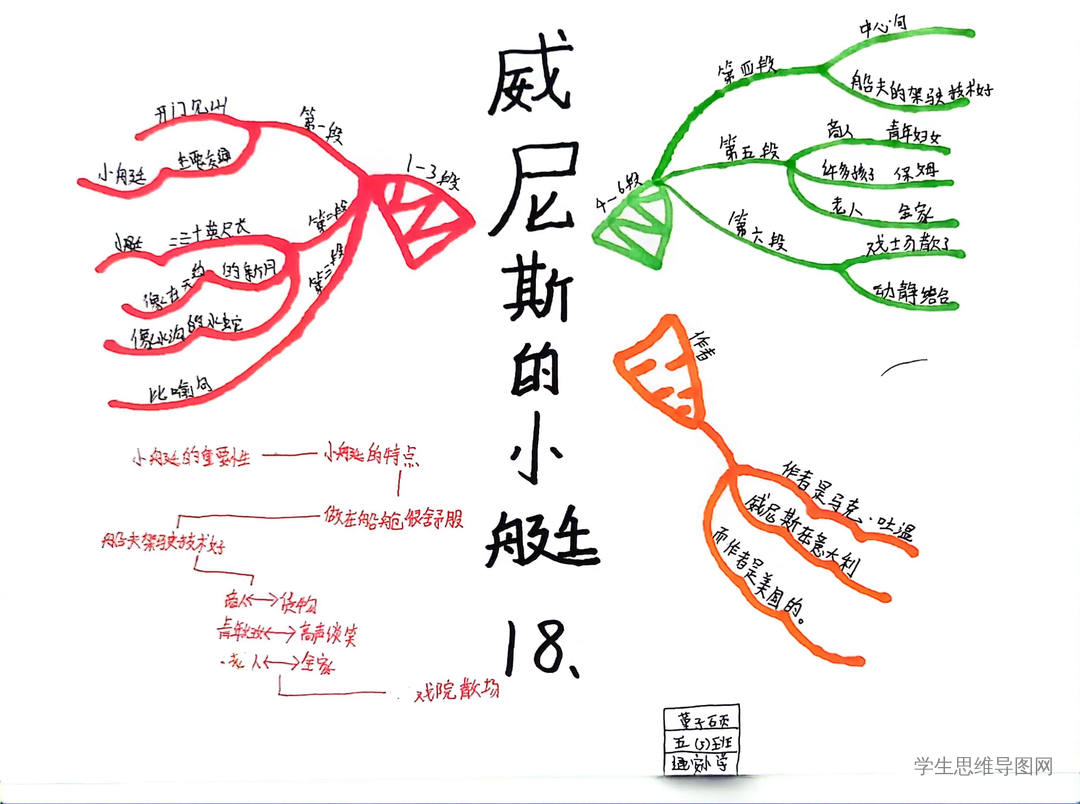 威尼斯的小艇
18、
1-3段
第一段
开门见山
小艇
主要交通
第二段
小艇
二三十英尺长
像 天 的新月
像水沟的水蛇
第三段
比喻句
4-6段
第四段
中心句
船夫的驾驶技术好
第五段
商人
青年妇女
许多孩子
保姆
老人
全家
第六段
戏 散了
动静结合
作者
作者是马克·吐温
威尼斯在意大利
而作者是美国的。
小艇的重要性
小艇的特点
做在船舱很舒服
船夫驾驶技术好
商人
货物
青年妇女
高声谈笑
老人
全家
戏院散场
五(5)班
学生思维导图网